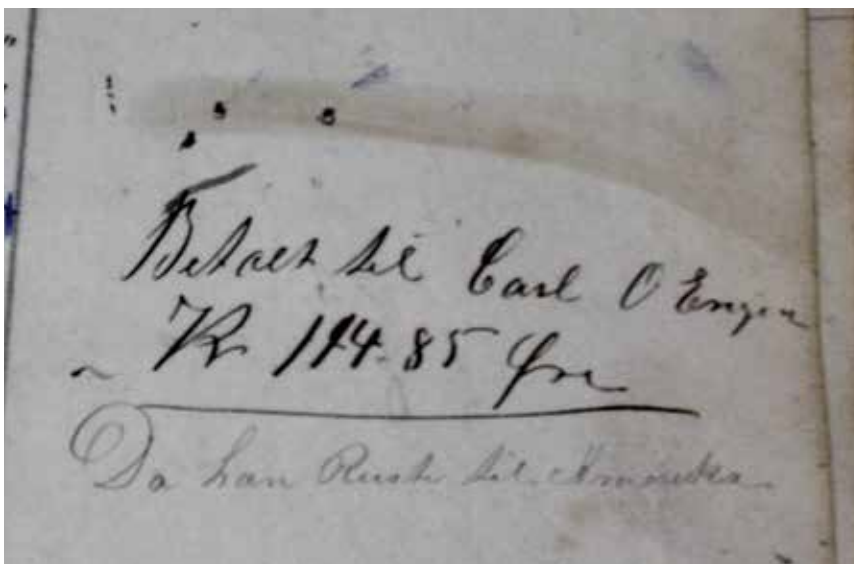 Betalt til Carl O Engen
Kr 114.85 Øre
Da han Reiste til Amerika